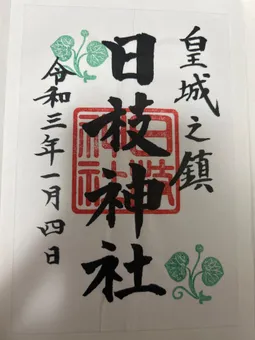 皇城之鎮
日枝神社
日枝神社
令和三年一月四日